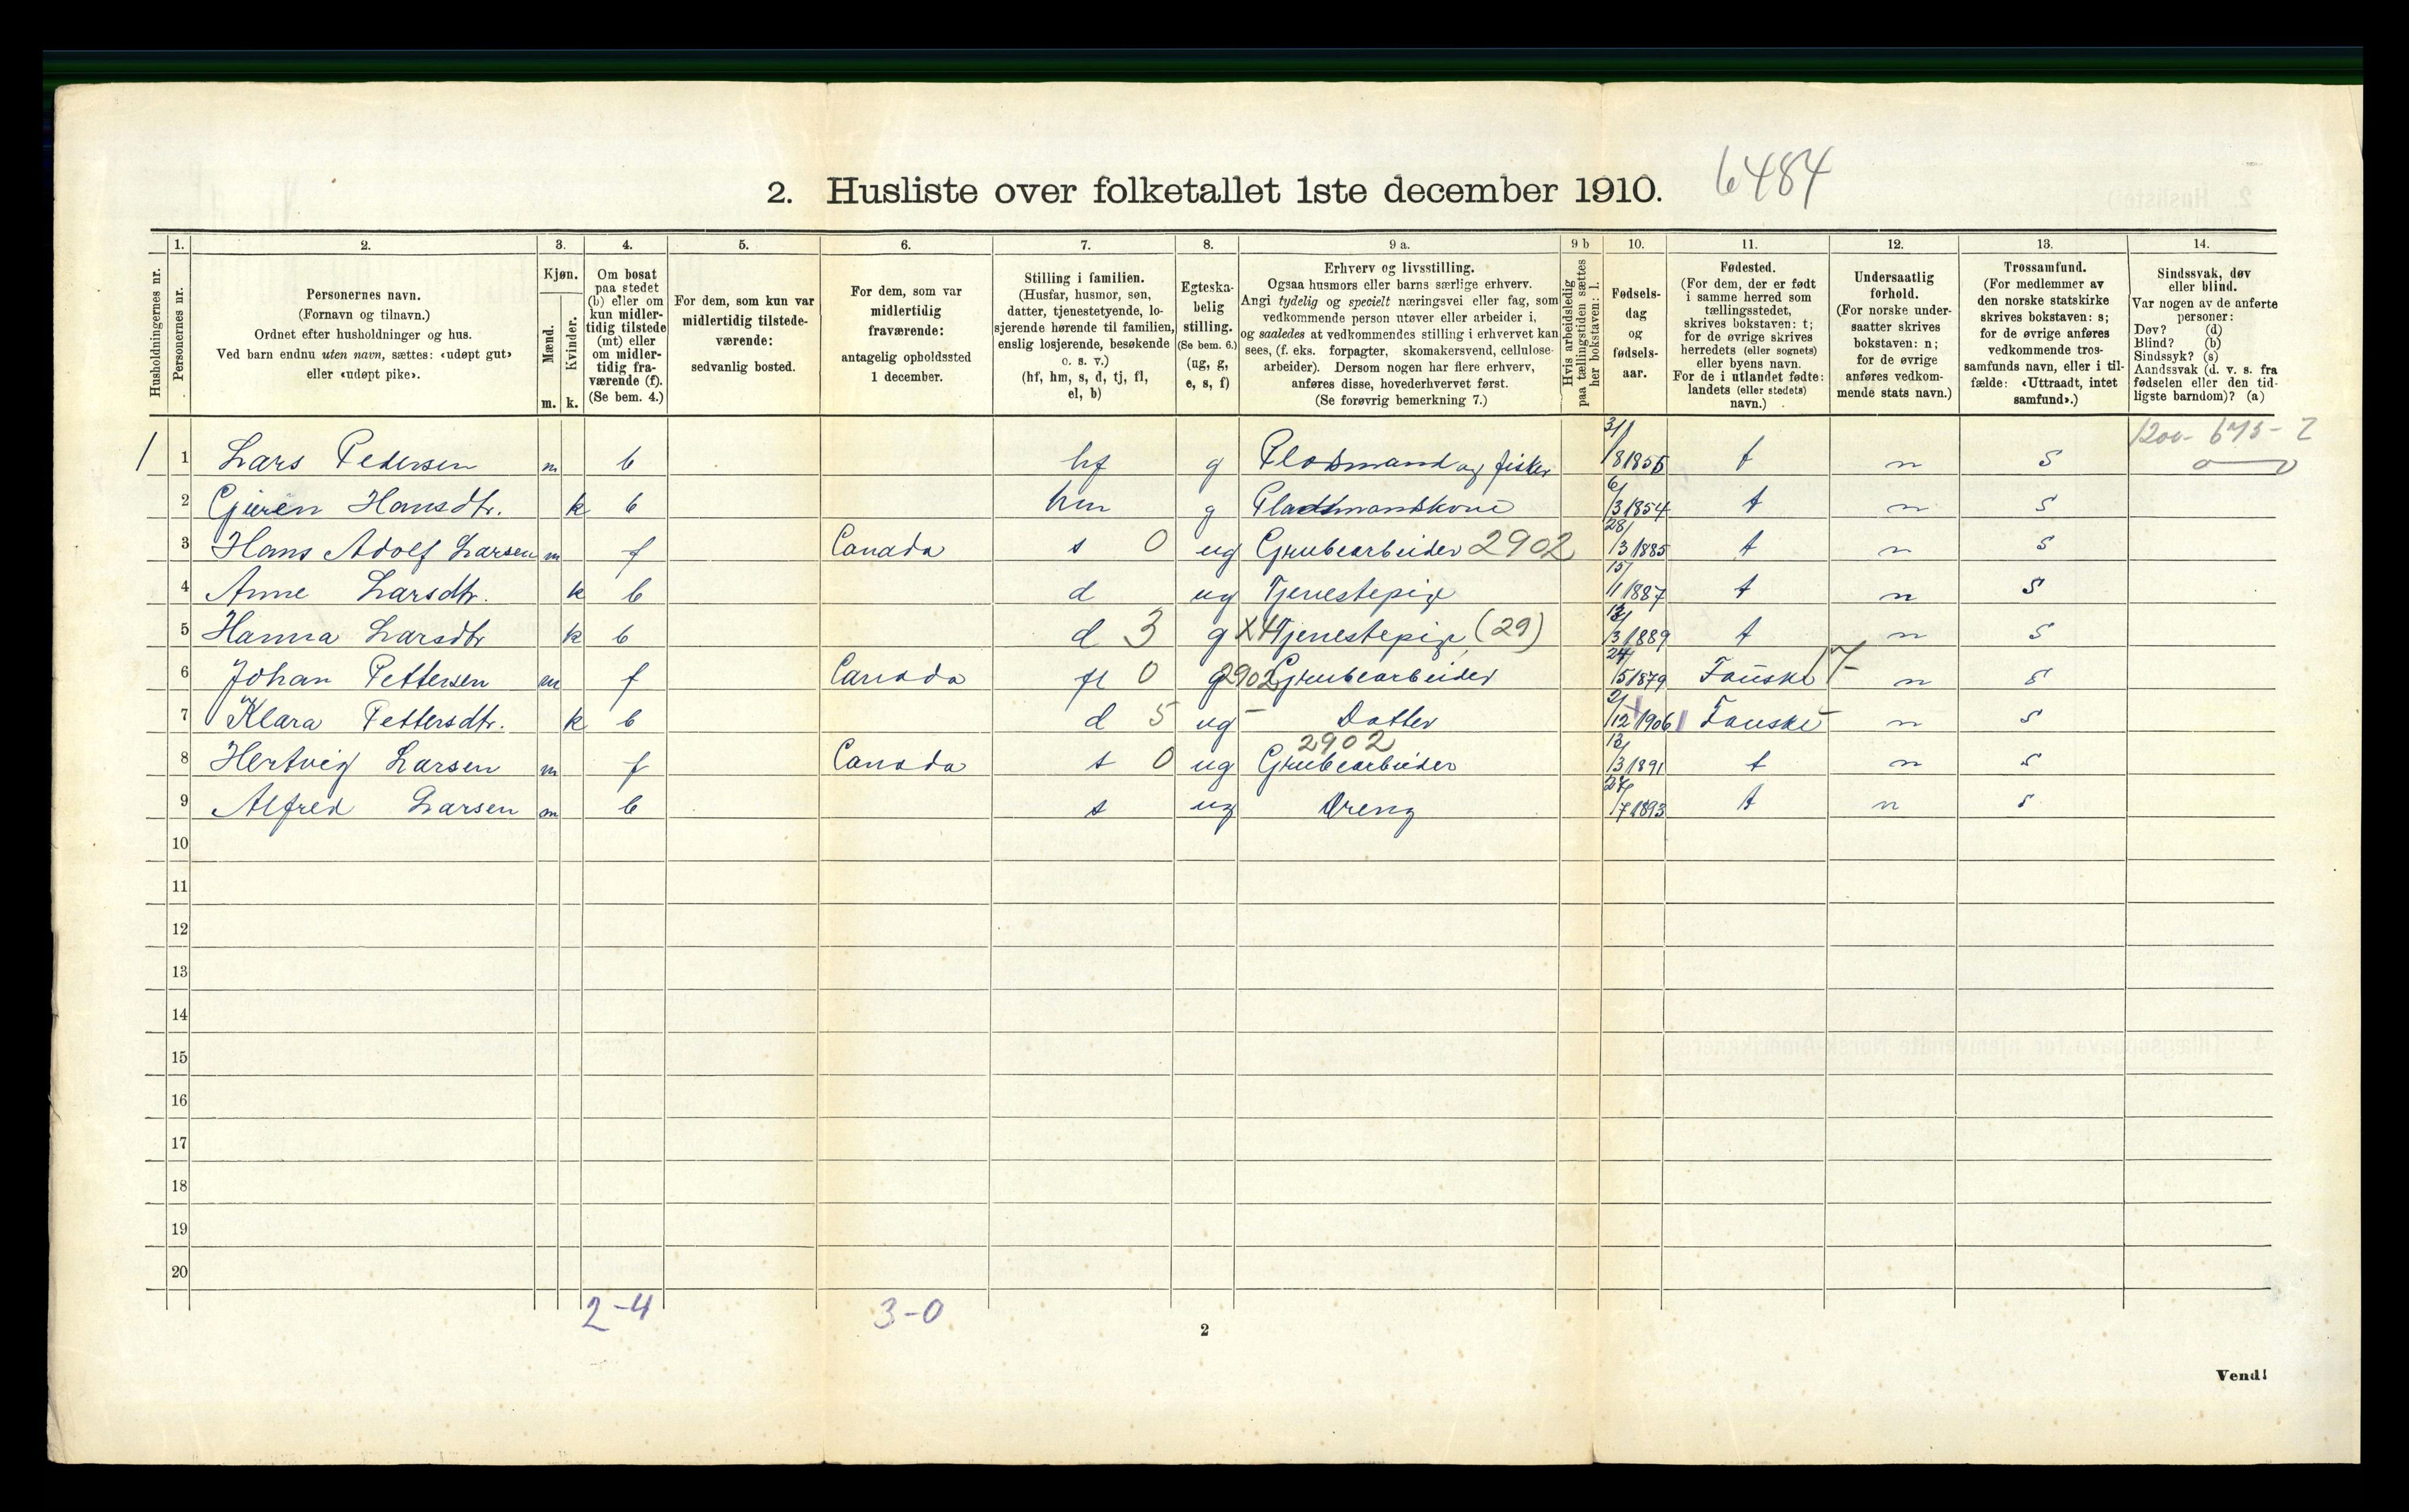 2. Husliste over folketallet 1ste december 1910. 6484
1. 2. 3. 4. 5. 6. 7. 8. 9 a. 9 b 10. 11. 12. 13. 14.
Husholdningernes nr.
Personernes nr.
Personernes navn.
(Fornavn og tilnavn.)
Ordnet efter husholdninger og hus.
Ved barn endnu uten navn, sættes: «udøpt gut»
eller «udøpt pike».
Kjøn.
Mænd.
Kvinder.
m. k.
Om bosat
paa stedet
(b) eller om
kun midler-
tidig tilstede
(mt) eller
om midler-
tidig fra-
værende (f).
(Se bem. 4.)
For dem, som kun var
midlertidig tilstede-
værende:
sedvanlig bosted.
For dem, som var
midlertidig
fraværende:
antagelig opholdssted
1 december.
Stilling i familien.
(Husfar, husmor, søn,
datter, tjenestetyende, lo-
sjerende hørende til familien,
enslig losjerende, besøkende
o. s. v.)
(hf, hm, s, d, tj, fl,
el, b)
Egteska-
belig
stilling.
(Se bem. 6.)
(ug, g,
e, s, f)
Erhverv og livsstilling.
Ogsaa husmors eller barns særlige erhverv.
Angi tydelig og specielt næringsvei eller fag, som
vedkommende person utøver eller arbeider i,
og saaledes at vedkommendes stilling i erhvervet kan
sees, (f. eks. forpagter, skomakersvend, cellulose-
arbeider). Dersom nogen har flere erhverv,
anføres disse, hovederhvervet først.
(Se forøvrig bemerkning 7.)
Hvis arbeidsledig
paa tællingstiden sættes
her bokstaven: l.
Fødsels-
dag
og
fødsels-
aar.
Fødested.
(For dem, der er født
i samme herred som
tællingsstedet,
skrives bokstaven: t;
for de øvrige skrives
herredets (eller sognets)
eller byens navn.
For de i utlandet fødte:
landets (eller stedets)
navn.)
Undersaatlig
forhold.
(For norske under-
saatter skrives
bokstaven: n;
for de øvrige
anføres vedkom-
mende stats navn.)
Trossamfund.
(For medlemmer av
den norske statskirke
skrives bokstaven: s;
for de øvrige anføres
vedkommende tros-
samfunds navn, eller i til-
fælde: «Uttraadt, intet
samfund».)
Sindssvak, døv
eller blind.
Var nogen av de anførte
personer:
Døv? (d)
Blind? (b)
Sindssyk? (s)
Aandssvak (d. v. s. fra
fødselen eller den tid-
ligste barndom)? (a)
1 1 Lars Pedersen m b hf g og fisker 31/8 1856 t n s
2 Hansdtr. k b hm g 6/3 1854 t n s
3 Hans Adolf Larsen m f Canada s 0 ug Grubearbeider 2902 28/3 1885 t n s
4 Anne Larsdtr. k b d ug Tjenestepige 15/1 1887 t n s
5 Hanna Larsdtr k b d 3 g X4 Tjenestepige (29) 13/3 1889 t n s
6 Johan Pettersen m f Canada fl 0 g 2902 Grubearbeider 24/5 1879 Fauske n s
7 Klara Pettersdtr. k b d 5 ug - Datter 2/12 1906 Fauske n s
8 Hertvig Larsen m f Canada s 0 ug 2902 Grubearbeider 13/3 1891 t n s
9 Alfred Larsen m b s ug Dreng 27/7 1893 t n s
10
11
12
13
14
15
16
17
18
19
20
2-4 3-0
2
Vend!